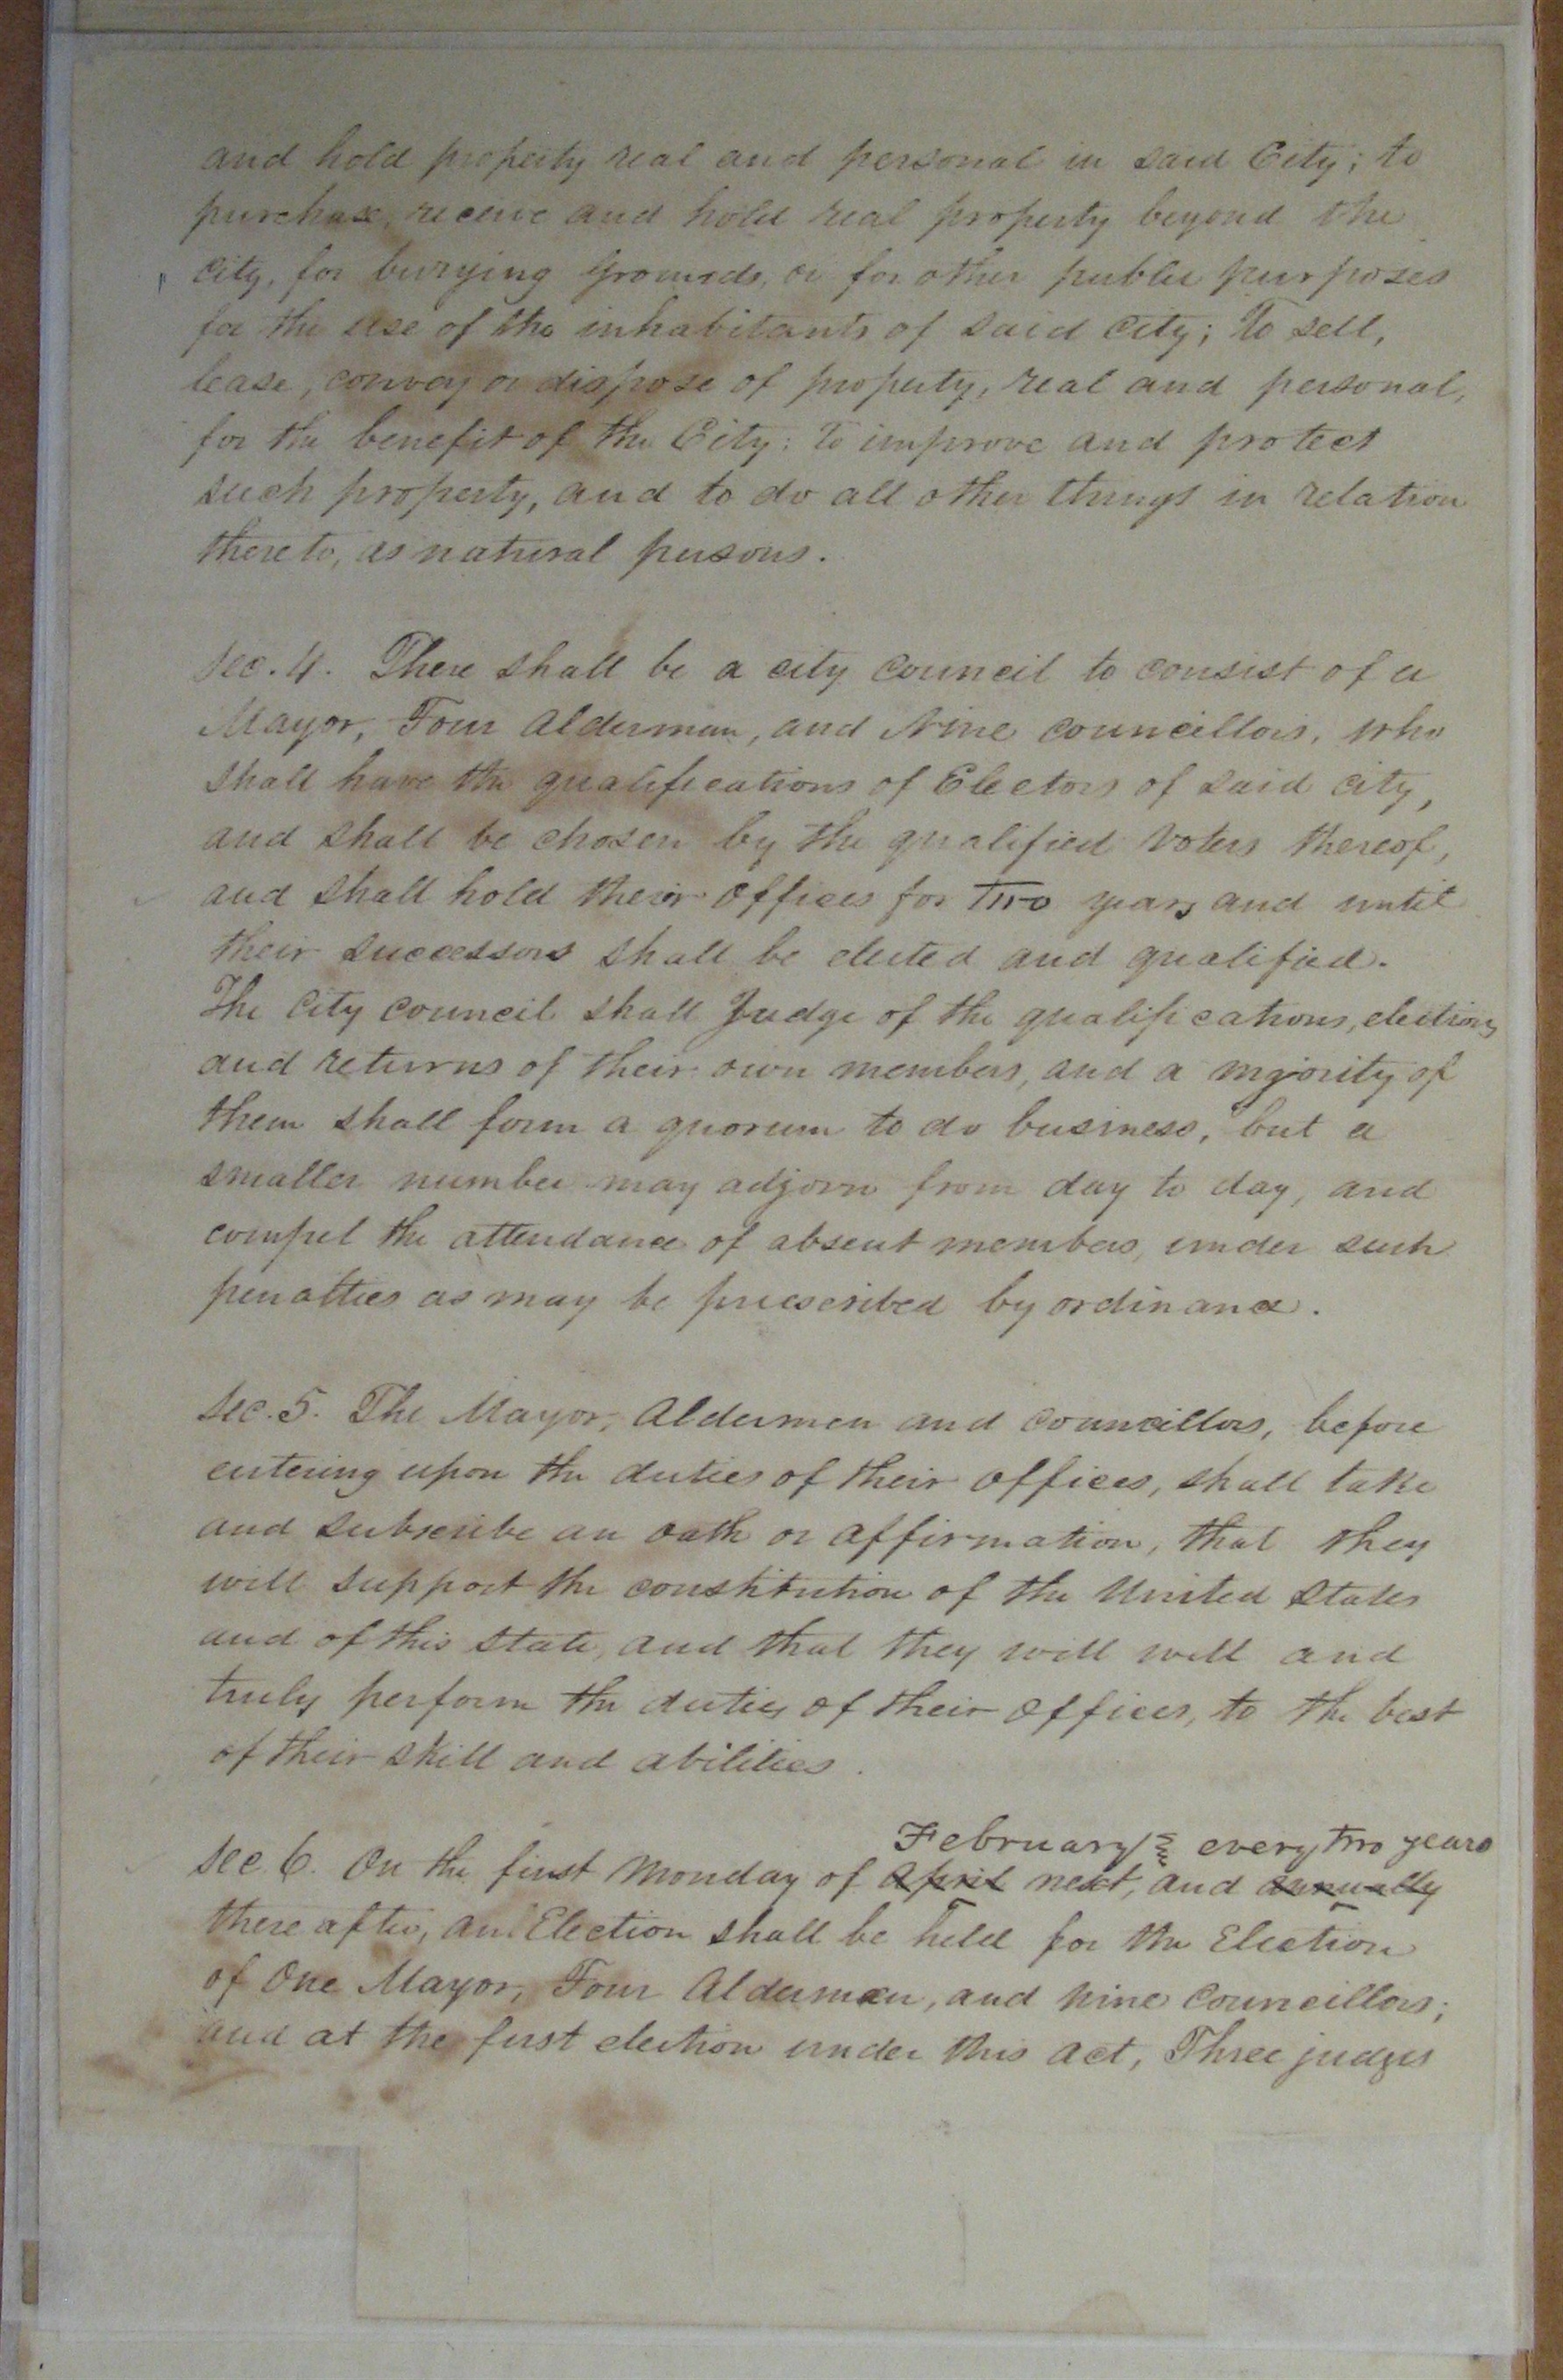 and hold property real and personal in said City; to
purchase, receive and hold real property beyond the
city, for burying Grounds, or for other public purposes
for the use of the inhabitants of said City; To sell,
lease, convey or dispose of property, real and personal,
for the benefit of the City; to improve and protect
such property, and to do all other things in relation
thereto, as natural persons.
Sec. 4. There shall be a city Council to consist of a
Mayor, Four Aldermen, and Nine Councillors, who
shall have the qualifications of Electors of said City,
and shall be chosen by the qualified voters thereof,
and shall hold their offices for Two years and until
their successors shall be elected and qualified.
The City Council shall Judge of the qualifications, elections
and returns of their own members, and a majority of
them shall form a quorum to do business, but a
smaller number may adjorn from day to day, and
compel the attendance of absent members, under such
penalties as may be prescribed by ordinance.
Sec. 5. The Mayor, Aldermen and Councillors, before
entering upon the duties of their offices, shall take
and subscribe an oath or affirmation, that they
will support the constitution of the United States
and of this State, and that they will well and
truly perform the duties of their offices, to the best
of their skill and abilities.
February every two years
Sec 6. On the first Monday of April next, and annually
there after, an Election shall be held for the Election
of One Mayor, Four Aldermen, and nine Councillors;
and at the first election under this act, Three judges